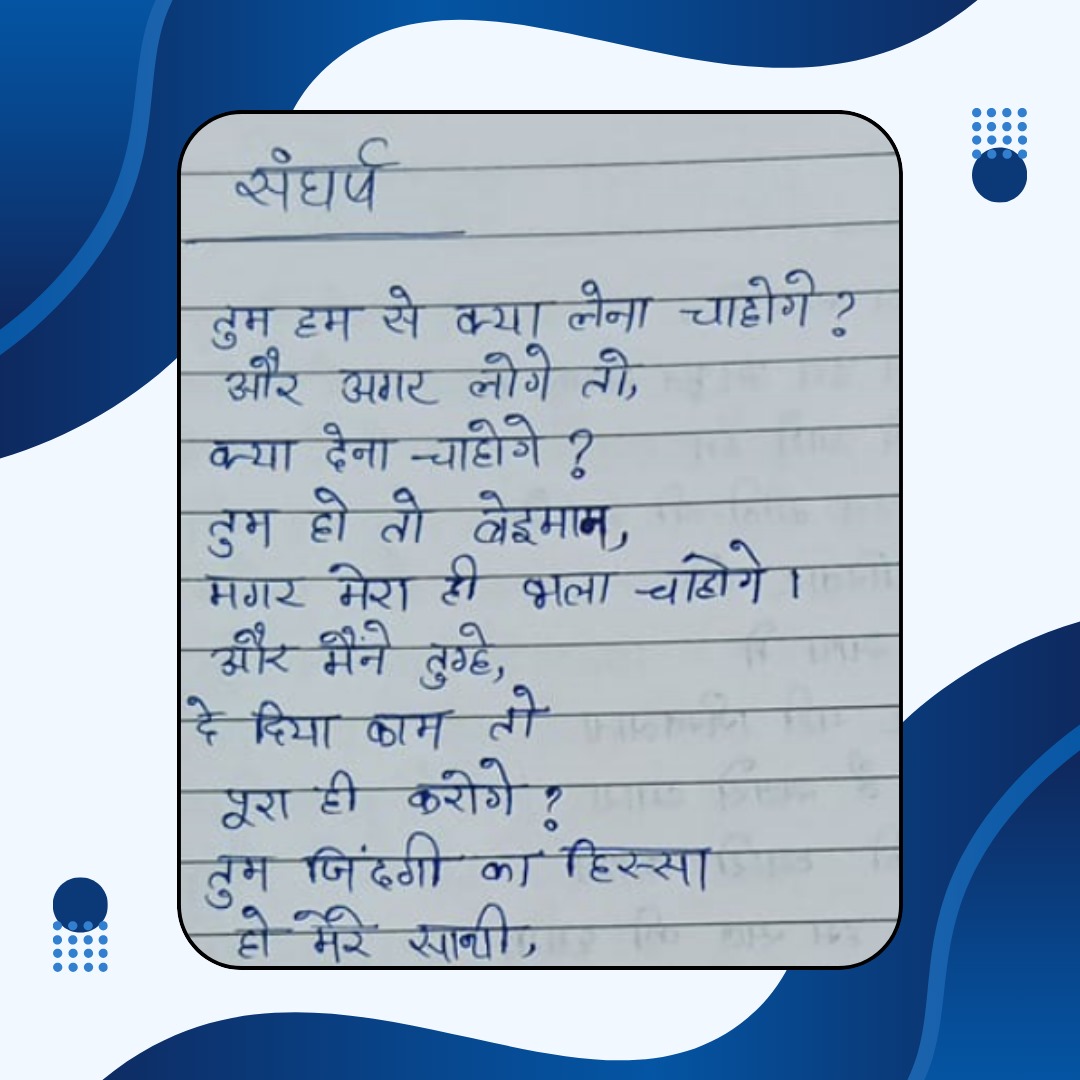 संघर्ष
तुम हम से क्या लेना चाहोगे ?
और अगर लोगे तो,
क्या देना चाहोगे ?
तुम हो तो बेइमान,
मगर मेरा ही भला चाहोगे ।
और मैंने तुम्हे,
दे दिया काम तो
पूरा ही करोगे ?
तुम जिंदगी का हिस्सा
हो मेरे साथी,